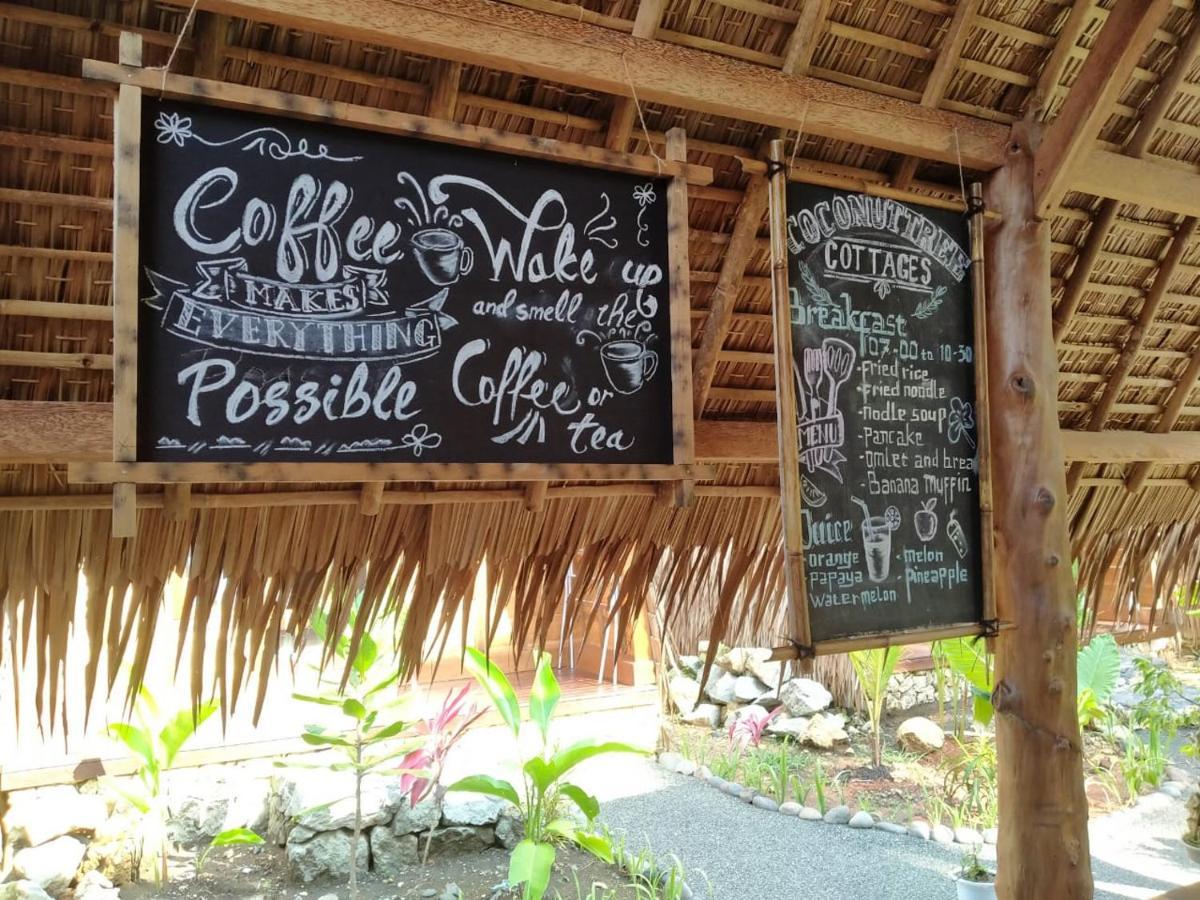 Coffee
MAKES
EVERYTHING
Possible
Wake up
and smell the
Coffee or
tea
COCONUTTREE
COTTAGES
Breakfast
07-00 to 10-30
-Fried rice
-fried noodle
-nodle soup
-Pancake
-omlet and brea
-Banana muffin
MENU
Juice
-orange
-papaya
watermelon
-melon
pineapple